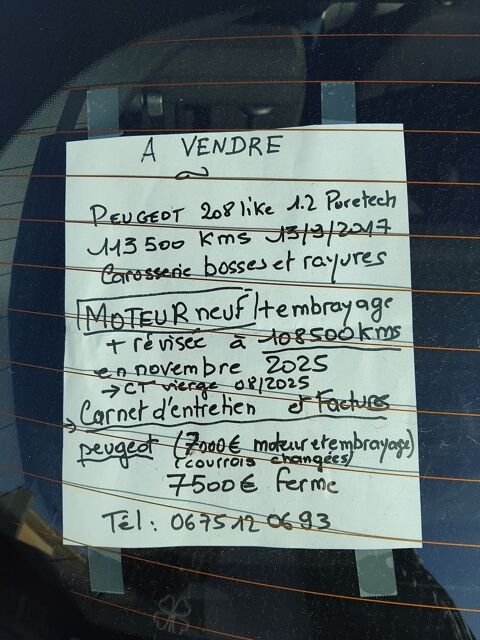 A VENDRE
PEUGEOT 208 like 1.2 Puretech
113 500 Kms 13/9/2017
Carosserie bosses et rayures
MOTEUR neuf + embrayage
+ révisée à 108500 kms
en novembre 2025
→ CT vierge 08/2025
→ Carnet d'entretien et Factures
peugeot (7000€ moteur et embrayage)
(courrois changées)
7500€ ferme
Tél : 06 75 12 06 93